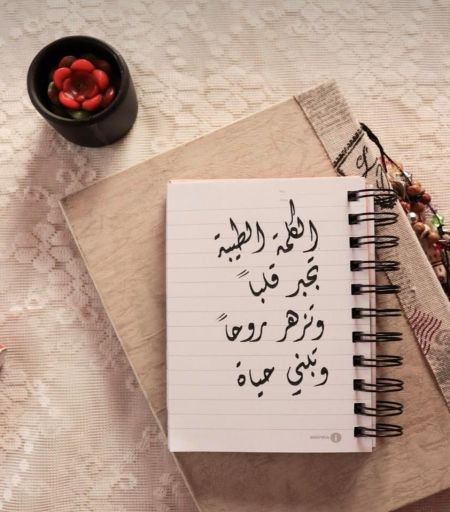 الكلمة الطيبة
تجبر قلباً
وتزهر روحاً
وتبني حياة